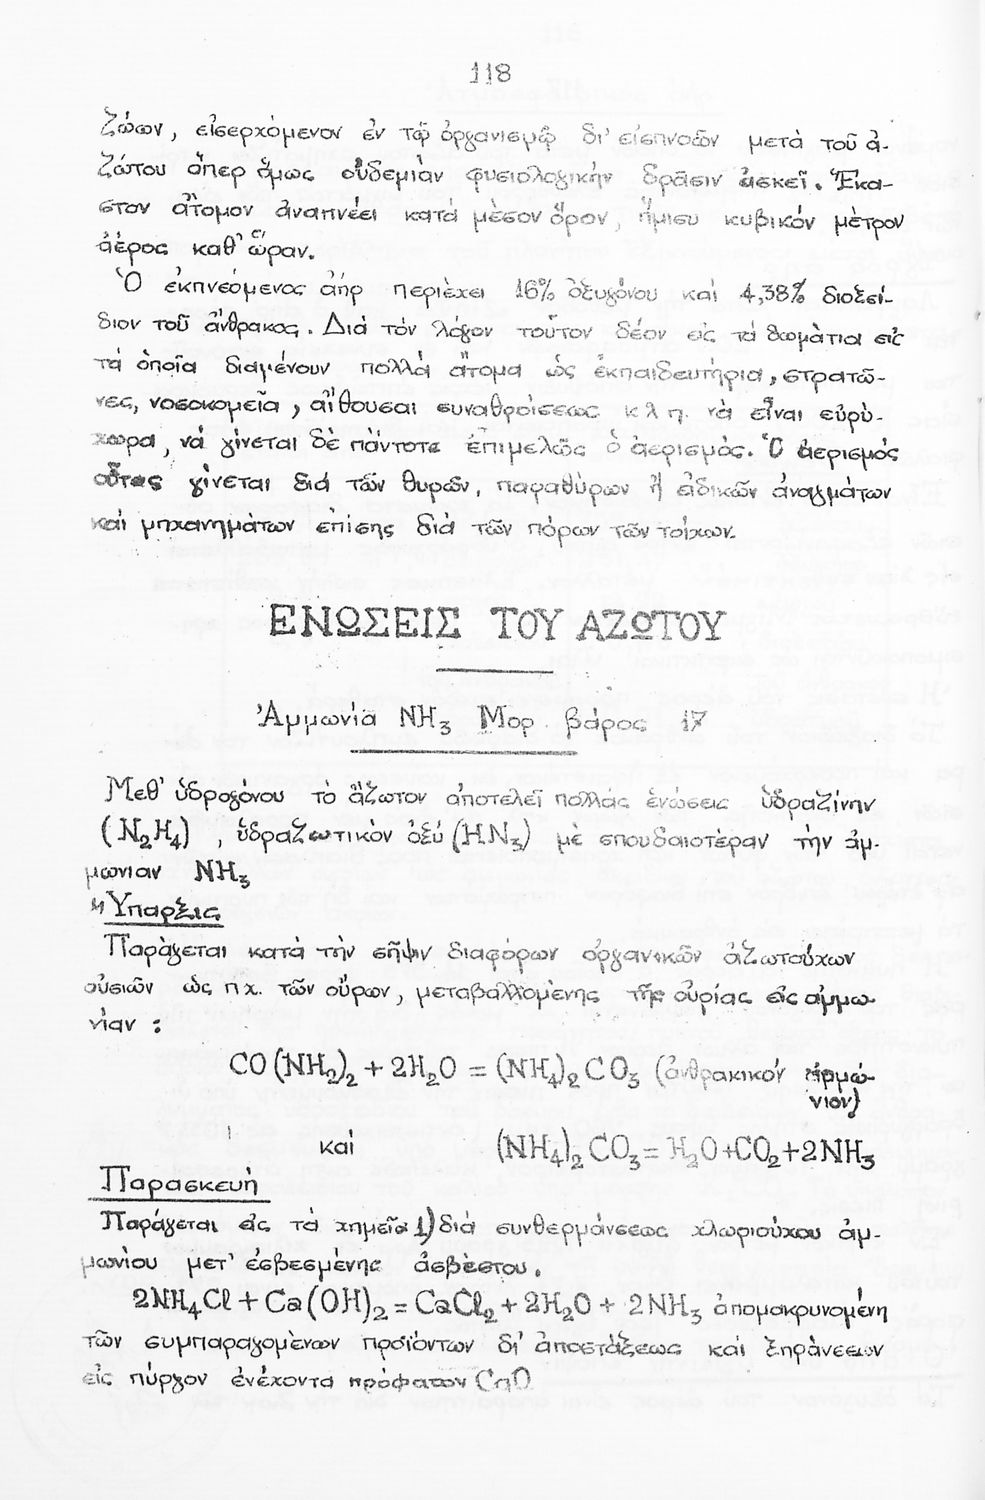 118
ζώων, εἰσερχόμενον ἐν τῷ ὀργανισμῷ δι' εἰσπνοῶν μετὰ τοῦ ἀ-
ζώτου ὅπερ ὅμως οὐδεμίαν φυσιολογικὴν δρᾶσιν ἀσκεῖ. Ἕκα-
στον ἄτομον ἀναπνέει κατὰ μέσον ὅρον, ἥμισυ κυβικὸν μέτρον
ἀέρος καθ' ὥραν.
Ὁ ἐκπνεόμενος ἀὴρ περιέχει 16% ὀξυγόνου καὶ 4,38% διοξεί-
διον τοῦ ἄνθρακος. Διὰ τὸν λόγον τοῦτον δέον εἰς τὰ δωμάτια εἰς
τὰ ὁποῖα διαμένουν πολλὰ ἄτομα ὡς ἐκπαιδευτήρια, στρατῶ-
νες, νοσοκομεῖα, αἴθουσαι συναθροίσεως κ λ π. νὰ εἶναι εὐρύ-
χωρα, νὰ γίνεται δὲ πάντοτε ἐπιμελῶς ὁ ἀερισμός. Ὁ ἀερισμὸς
οὗτος γίνεται διὰ τῶν θυρῶν, παραθύρων ἢ εἰδικῶν ἀνοιγμάτων
καὶ μηχανημάτων ἐπίσης διὰ τῶν πόρων τῶν τοίχων.
ΕΝΩΣΕΙΣ ΤΟΥ ΑΖΩΤΟΥ
Ἀμμωνία NH₃ Μορ. βάρος 17
Μεθ' ὑδρογόνου τὸ ἄζωτον ἀποτελεῖ πολλὰς ἑνώσεις ὑδραζίνην
(N₂H₄), ὑδραζωτικὸν ὀξύ (HN₃) μὲ σπουδαιοτέραν τὴν ἀμ-
μωνίαν NH₃
Ὕπαρξις
Παράγεται κατὰ τὴν σῆψιν διαφόρων ὀργανικῶν ἀζωτούχων
οὐσιῶν ὡς π χ. τῶν οὔρων, μεταβαλλομένης τῆς οὐρίας εἰς ἀμμω-
νίαν :
CO(NH₂)₂ + 2H₂O = (NH₄)₂CO₃ (ἀνθρακικὸν ἀμμώ-
νιον)
καὶ (NH₄)₂CO₃ = H₂O+CO₂+2NH₃
Παρασκευή
Παράγεται εἰς τὰ χημεῖα 1) διὰ συνθερμάνσεως χλωριούχου ἀμ-
μωνίου μετ' ἐσβεσμένης ἀσβέστου.
2NH₄Cl + Ca(OH)₂ = CaCl₂ + 2H₂O + 2NH₃ ἀπομακρυνομένη
τῶν συμπαραγομένων προϊόντων δι' ἀποστάξεως καὶ ξηράνσεων
εἰς πύργον ἐνέχοντα πρόσφατον CaO